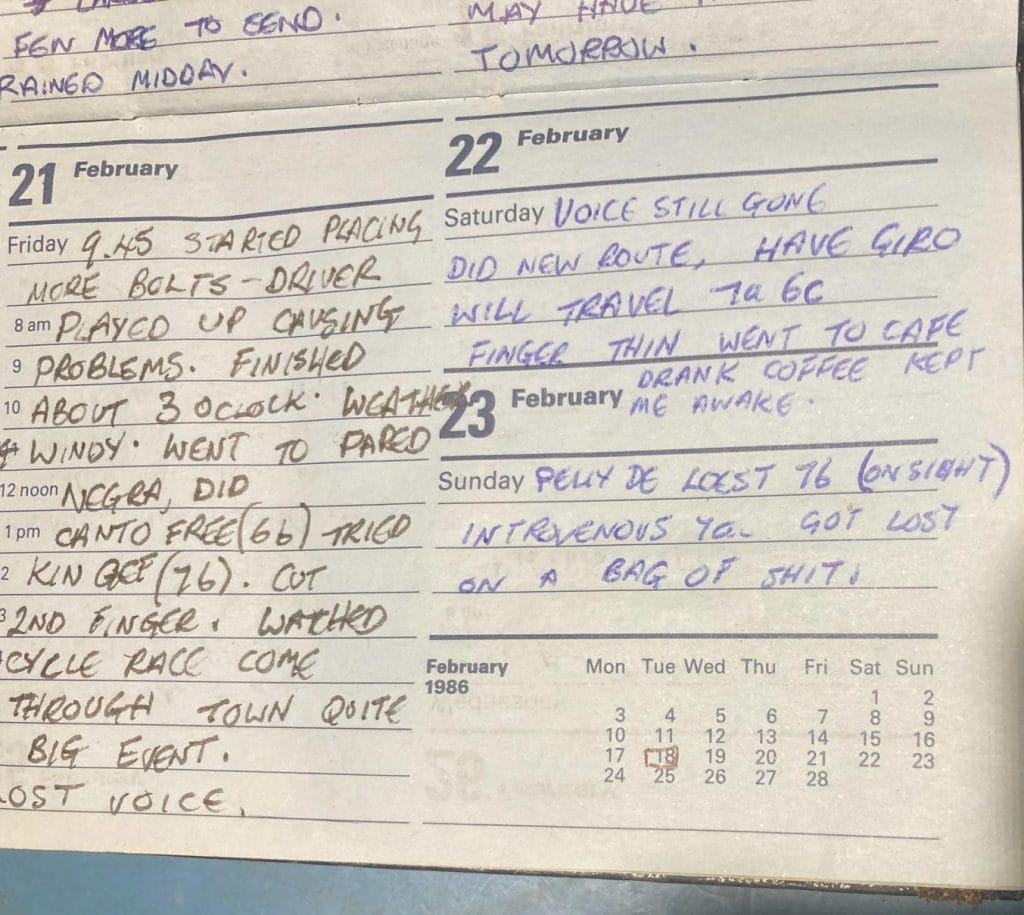 FEW MORE TO SEND.
RAINED MIDDAY.
MAY HAVE
TOMORROW.
21 February
Friday 9.45 STARTED PLACING
MORE BOLTS - DRIVER
8 am PLAYED UP CAUSING
9 PROBLEMS. FINISHED
10 ABOUT 3 OCLOCK. WEATHER
WINDY. WENT TO PARED
12 noon NEGRA, DID
1 pm CANTO FREE (6b) TRIED
2 KINGEF (7b). CUT
3 2ND FINGER. WATCHED
CYCLE RACE COME
THROUGH TOWN QUITE
BIG EVENT.
LOST VOICE.
22 February
Saturday VOICE STILL GONE
DID NEW ROUTE, HAVE GIRO
WILL TRAVEL 7a 6c
FINGER THIN WENT TO CAFE
DRANK COFFEE KEPT
ME AWAKE.
23 February
Sunday PELLY DE LOEST 7b (ONSIGHT)
INTROVENOUS 7a. GOT LOST
ON A BAG OF SHIT.
February
1986
Mon Tue Wed Thu Fri Sat Sun
1 2
3 4 5 6 7 8 9
10 11 12 13 14 15 16
17 18 19 20 21 22 23
24 25 26 27 28